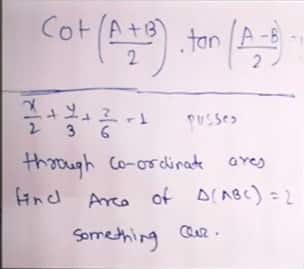 Cot (A+B/2) . tan (A-B/2) -
x/2 + y/3 + z/6 = 1 passes
through co-ordinate axes
find Area of Δ(ABC) = 2
something